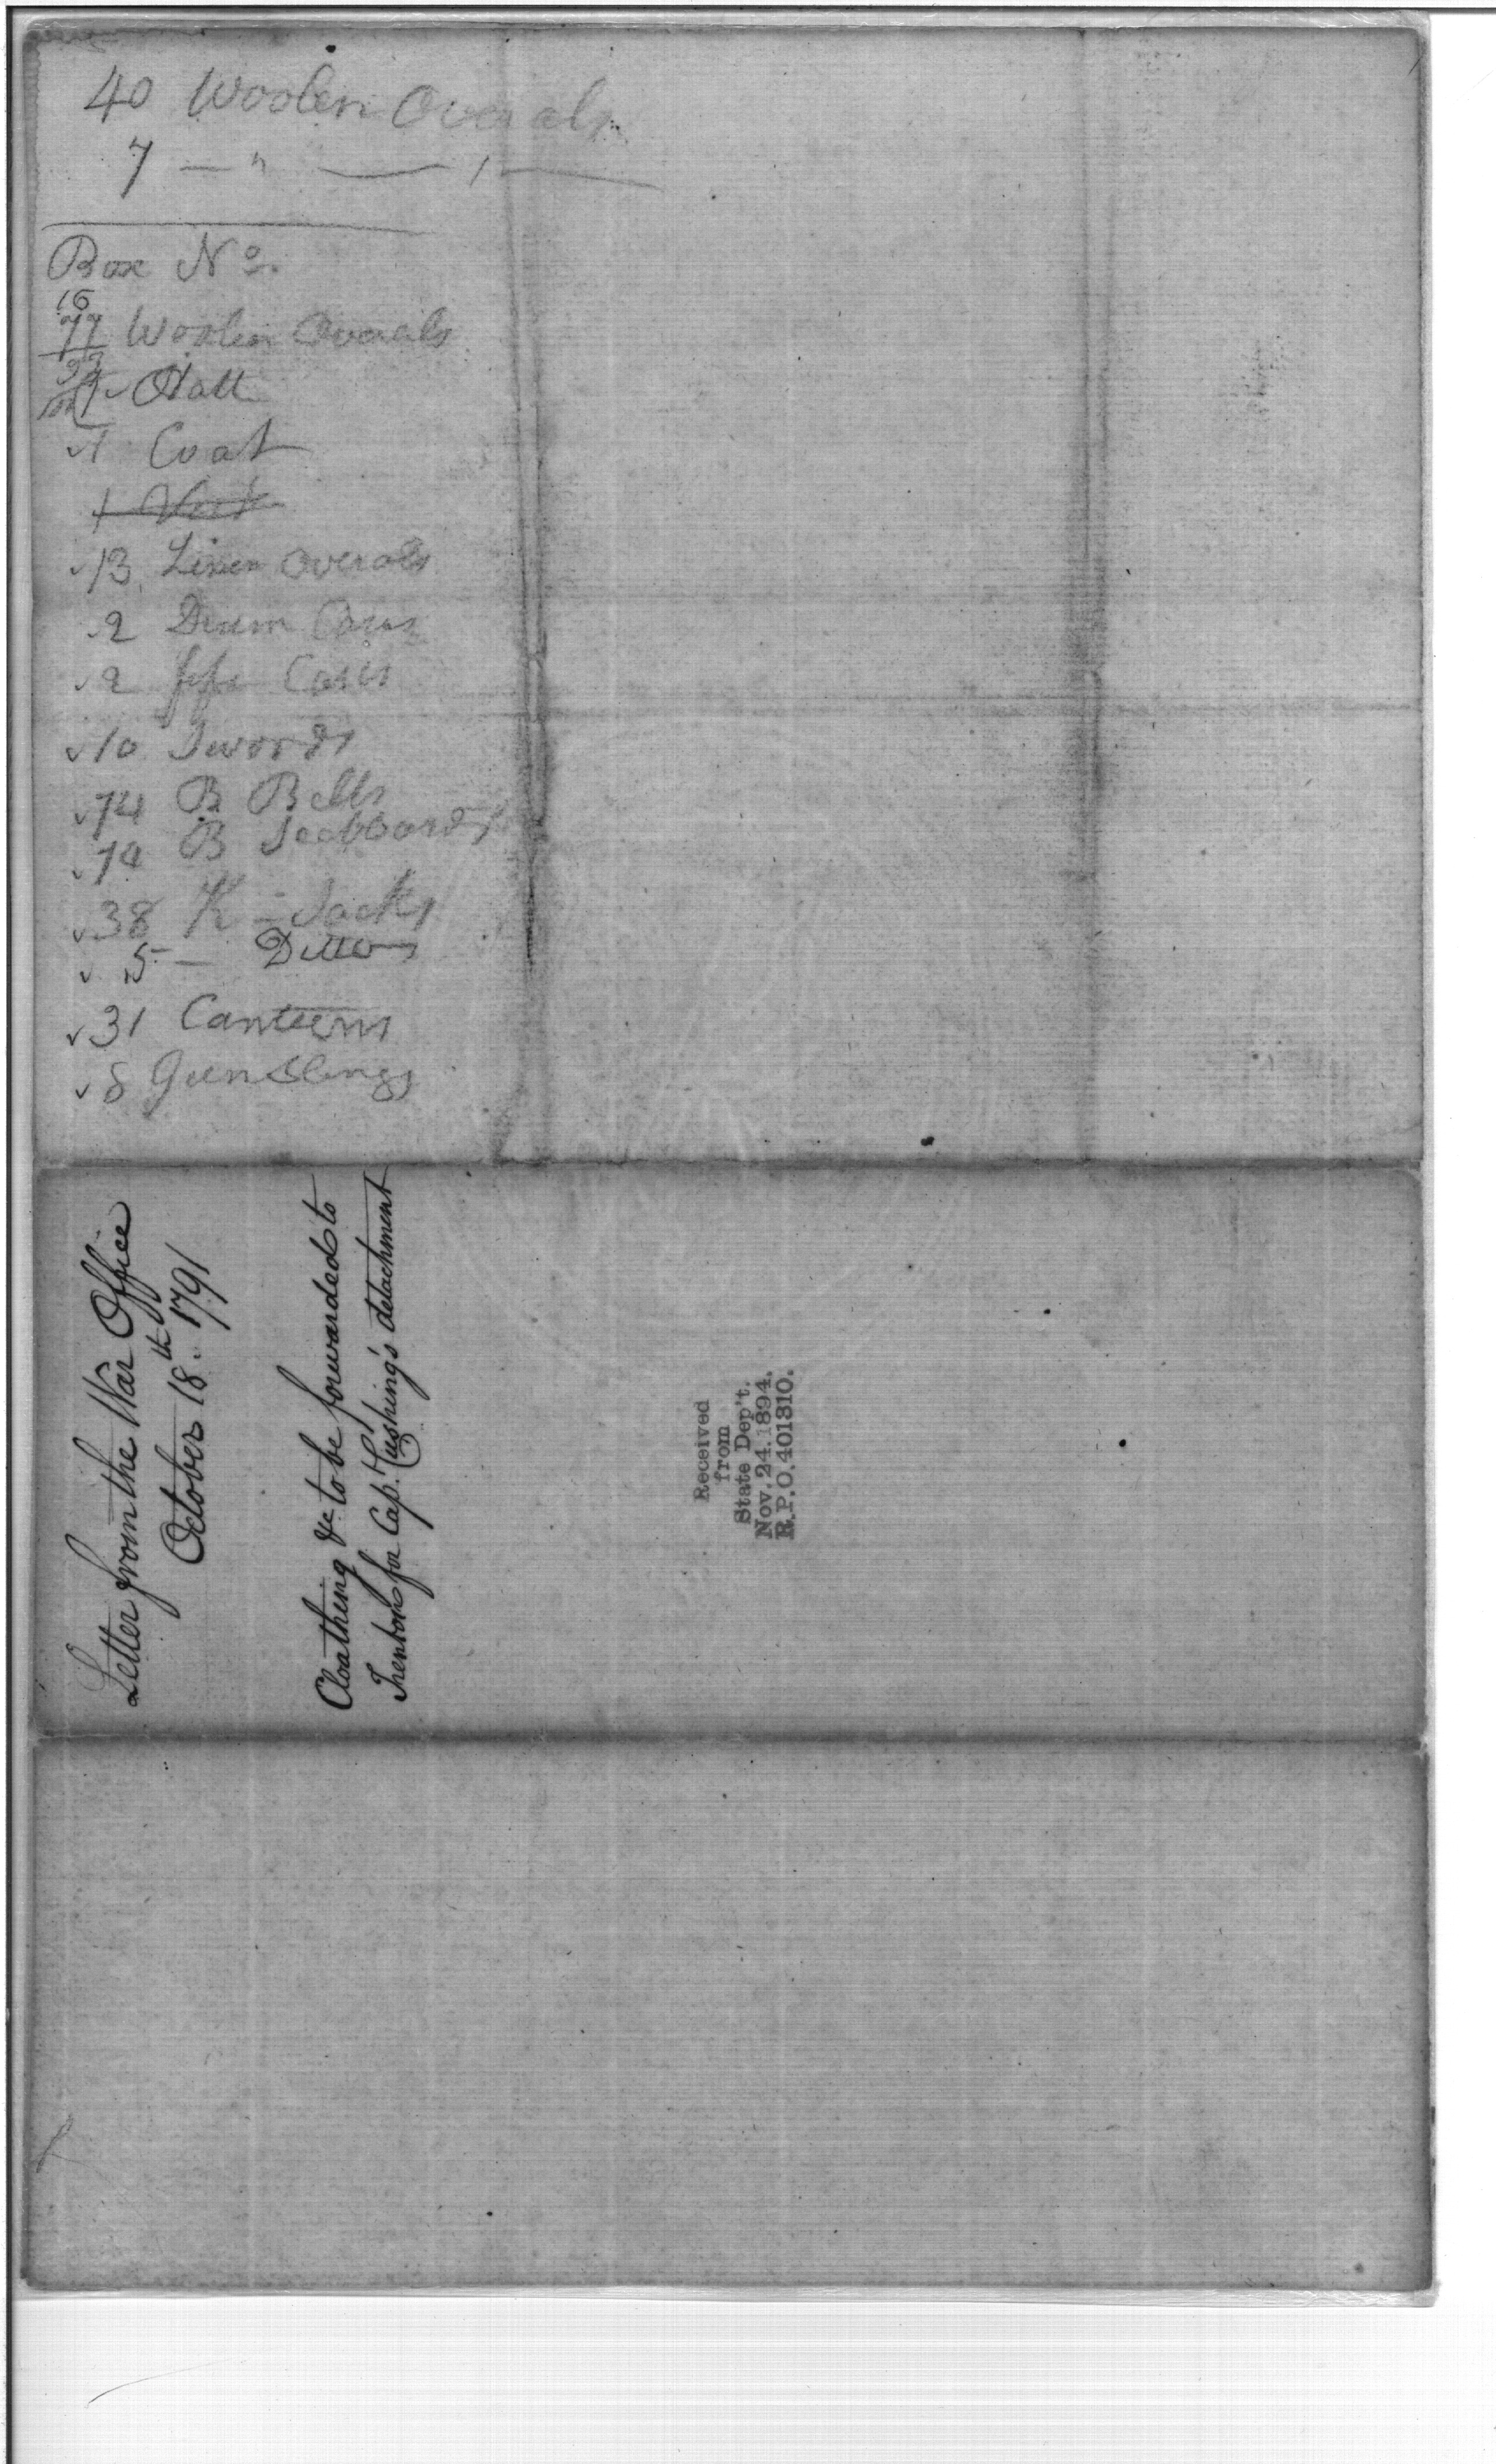 40 Woolen Overals
7 — " — —
Box No.
16
77 Woolen Overals
1 Hatt
1 Coat
1 Vest
13 Linen Overals
2 Drum Cases
2 fife Cases
10 Swords
74 B Belts
74 B Scabbards
38 K-Sacks
5 — Ditto
31 Canteens
8 Gun Slings
Letter from the War Office
October 18th 1791
Cloathing &c to be forwarded to
Trenton for Cap. Cushing's detachment
Received
from
State Dep't.
Nov. 24. 1894.
R.P.O. 401310.